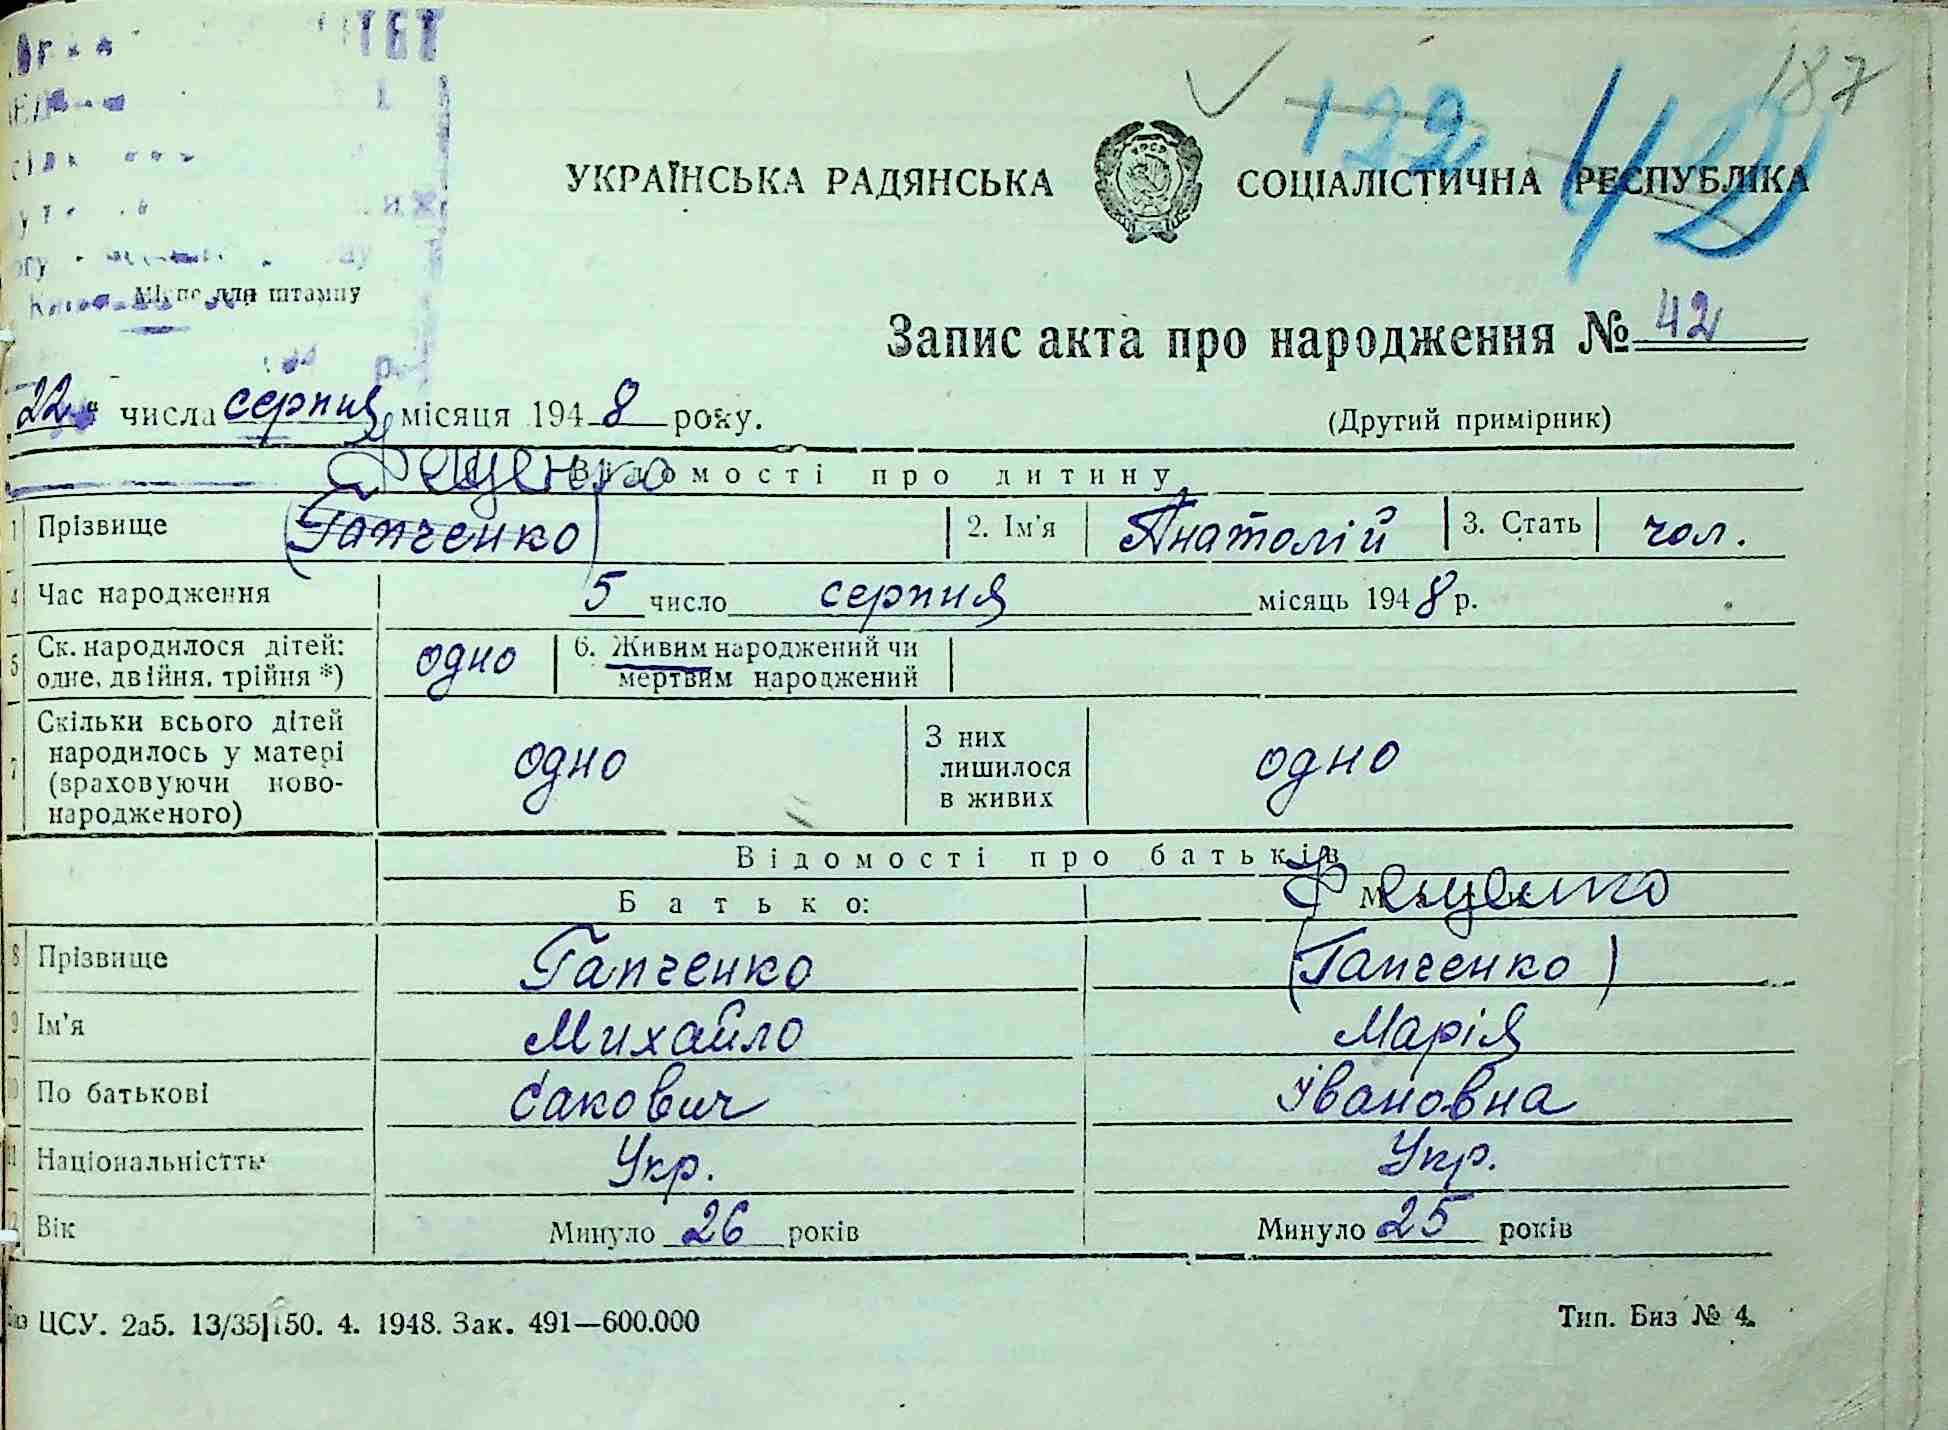 187
122 42
УКРАЇНСЬКА РАДЯНСЬКА СОЦІАЛІСТИЧНА РЕСПУБЛІКА
Місце для штампу
Запис акта про народження № 42
22 " числа серпня місяця 1948 року.
(Другий примірник)
Фещенко
Відомості про дитину
1 Прізвище (Гапченко) 2. Ім'я Анатолій 3. Стать чол.
4 Час народження 5 число серпня місяць 1948 р.
5 Ск. народилося дітей: одне, двійня, трійня *) одно 6. Живим народжений чи мертвим народжений
7 Скільки всього дітей народилось у матері (враховуючи ново-народженого) одно З них лишилося в живих одно
Відомості про батьків
Батько: Фещенко
8 Прізвище Гапченко (Гапченко)
9 Ім'я Михайло Марія
10 По батькові Сакович Івановна
11 Національність Укр. Укр.
12 Вік Минуло 26 років Минуло 25 років
ЦСУ. 2а5. 13/35|150. 4. 1948. Зак. 491—600.000
Тип. Биз № 4.